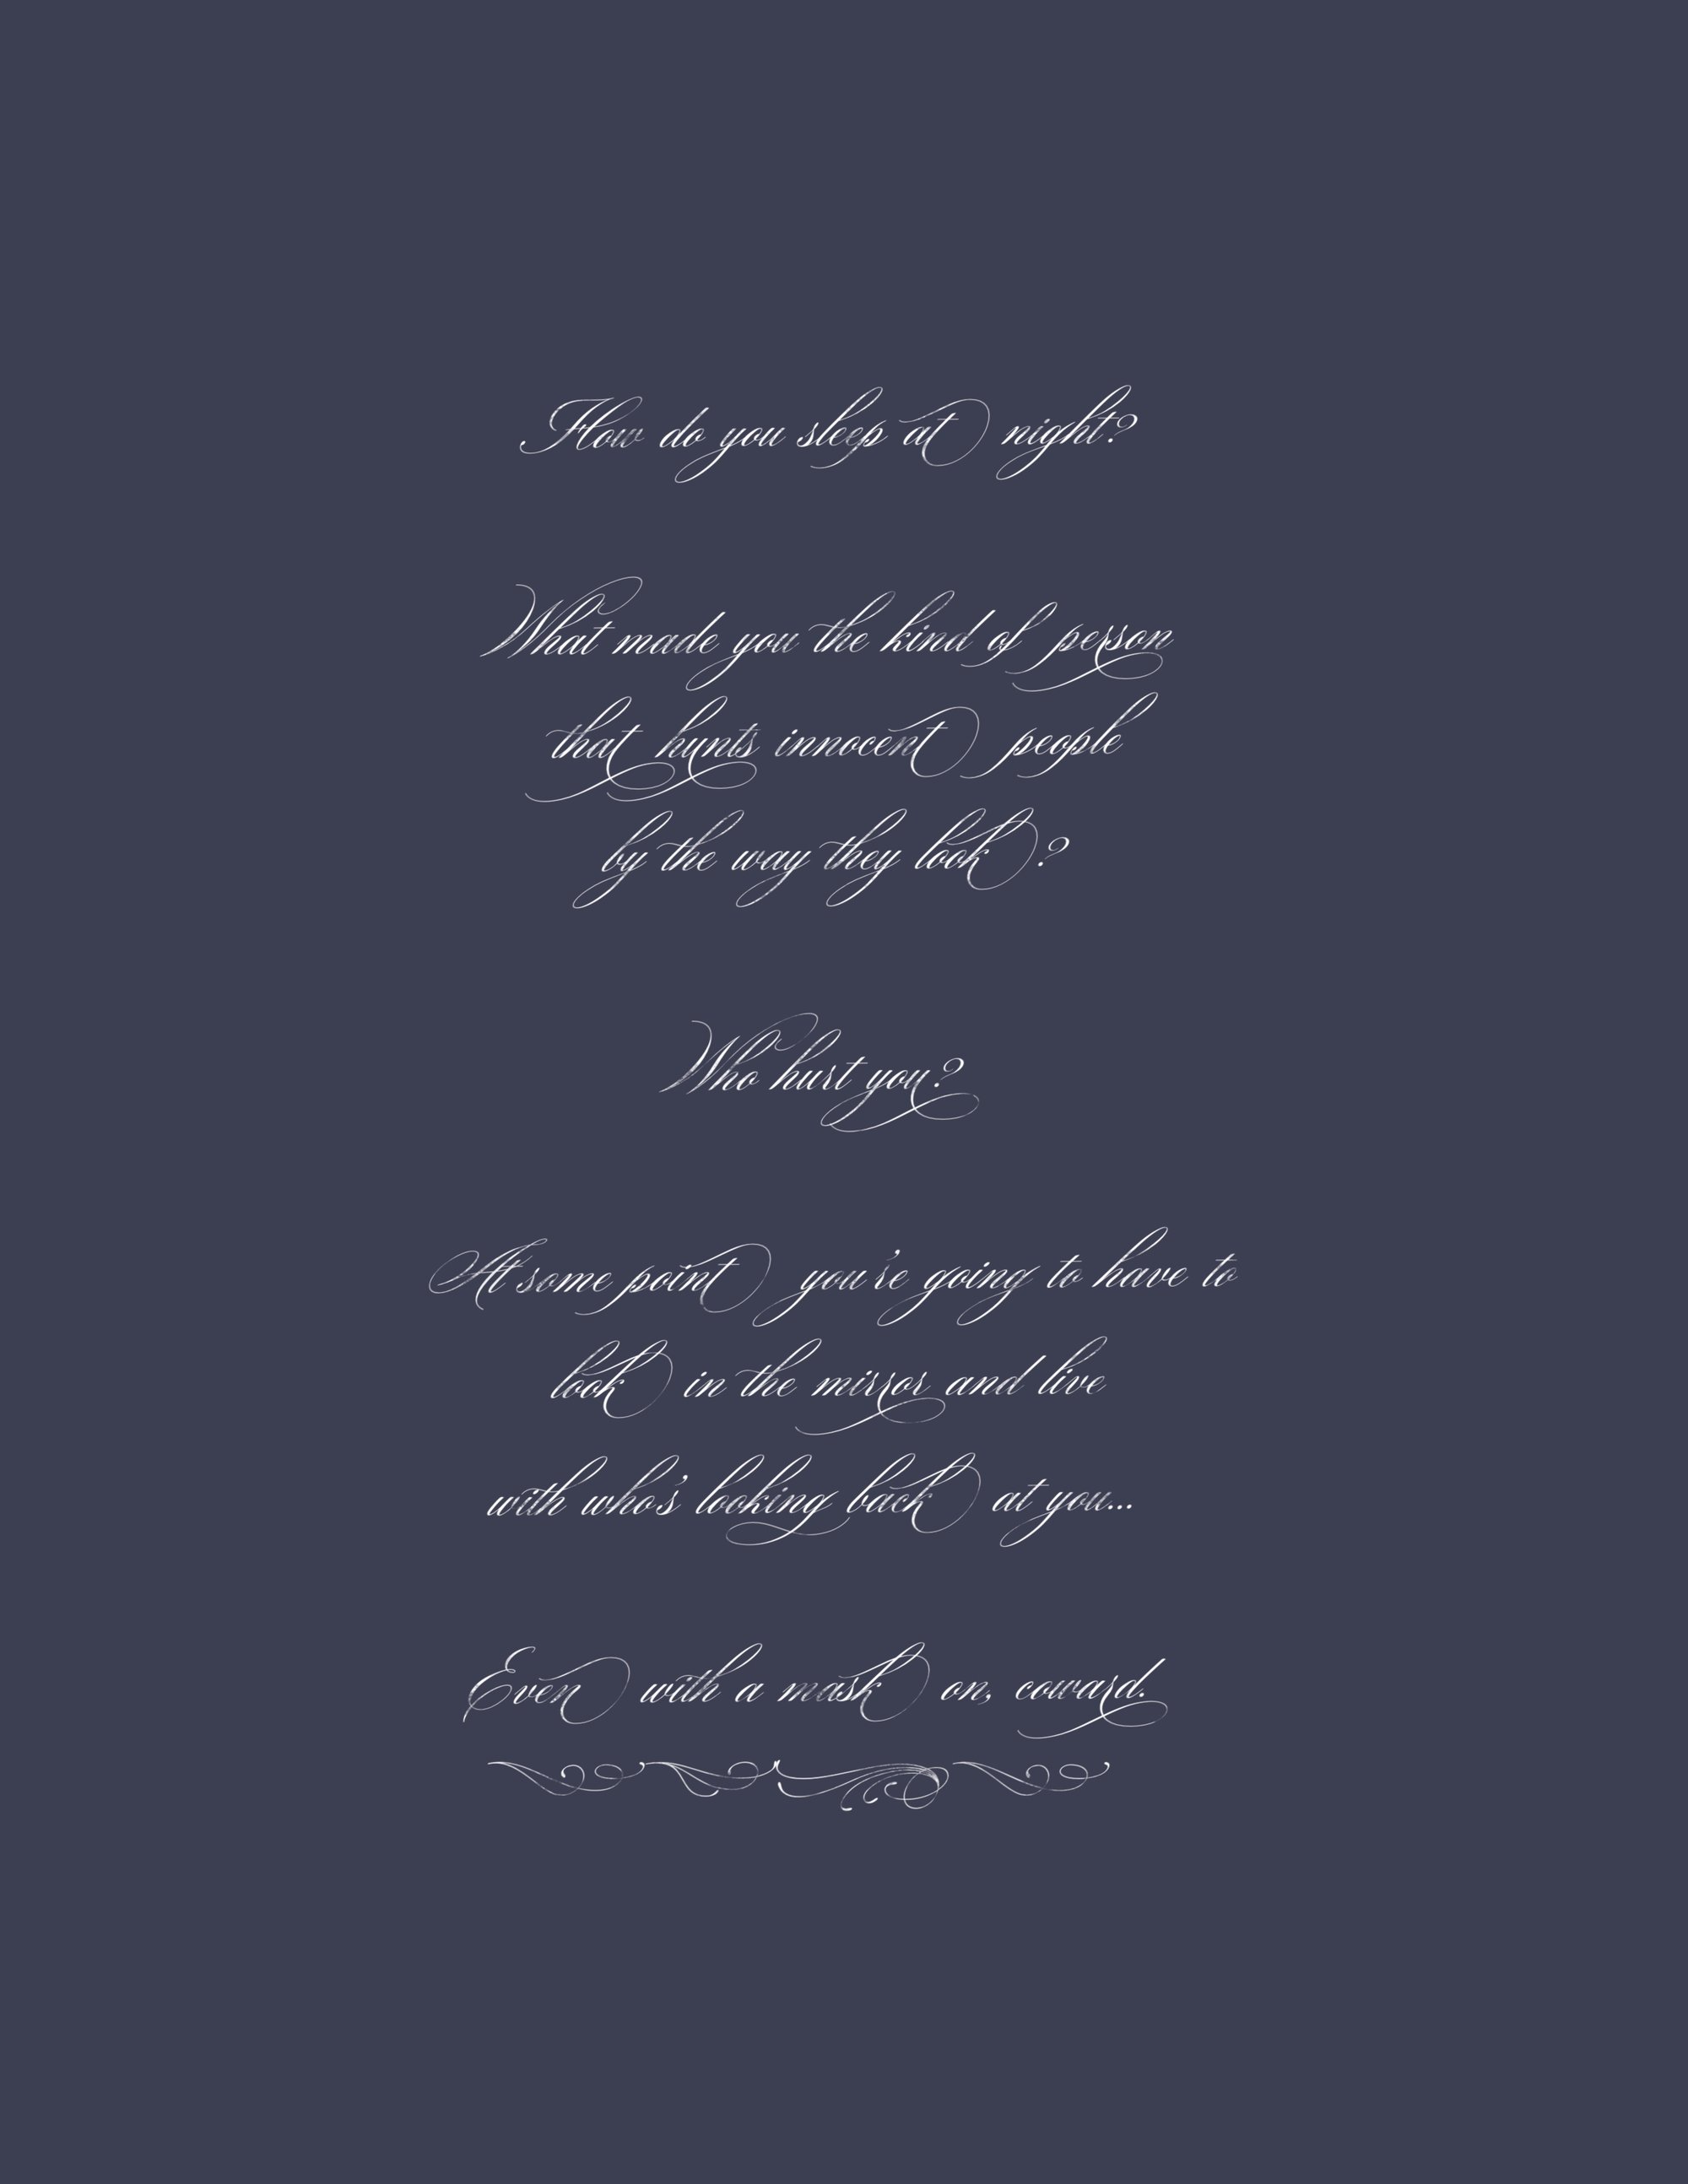 How do you sleep at night?
What made you the kind of person
that hunts innocent people
by the way they look?
Who hurt you?
At some point you're going to have to
look in the mirror and live
with who's looking back at you...
Even with a mask on, coward.